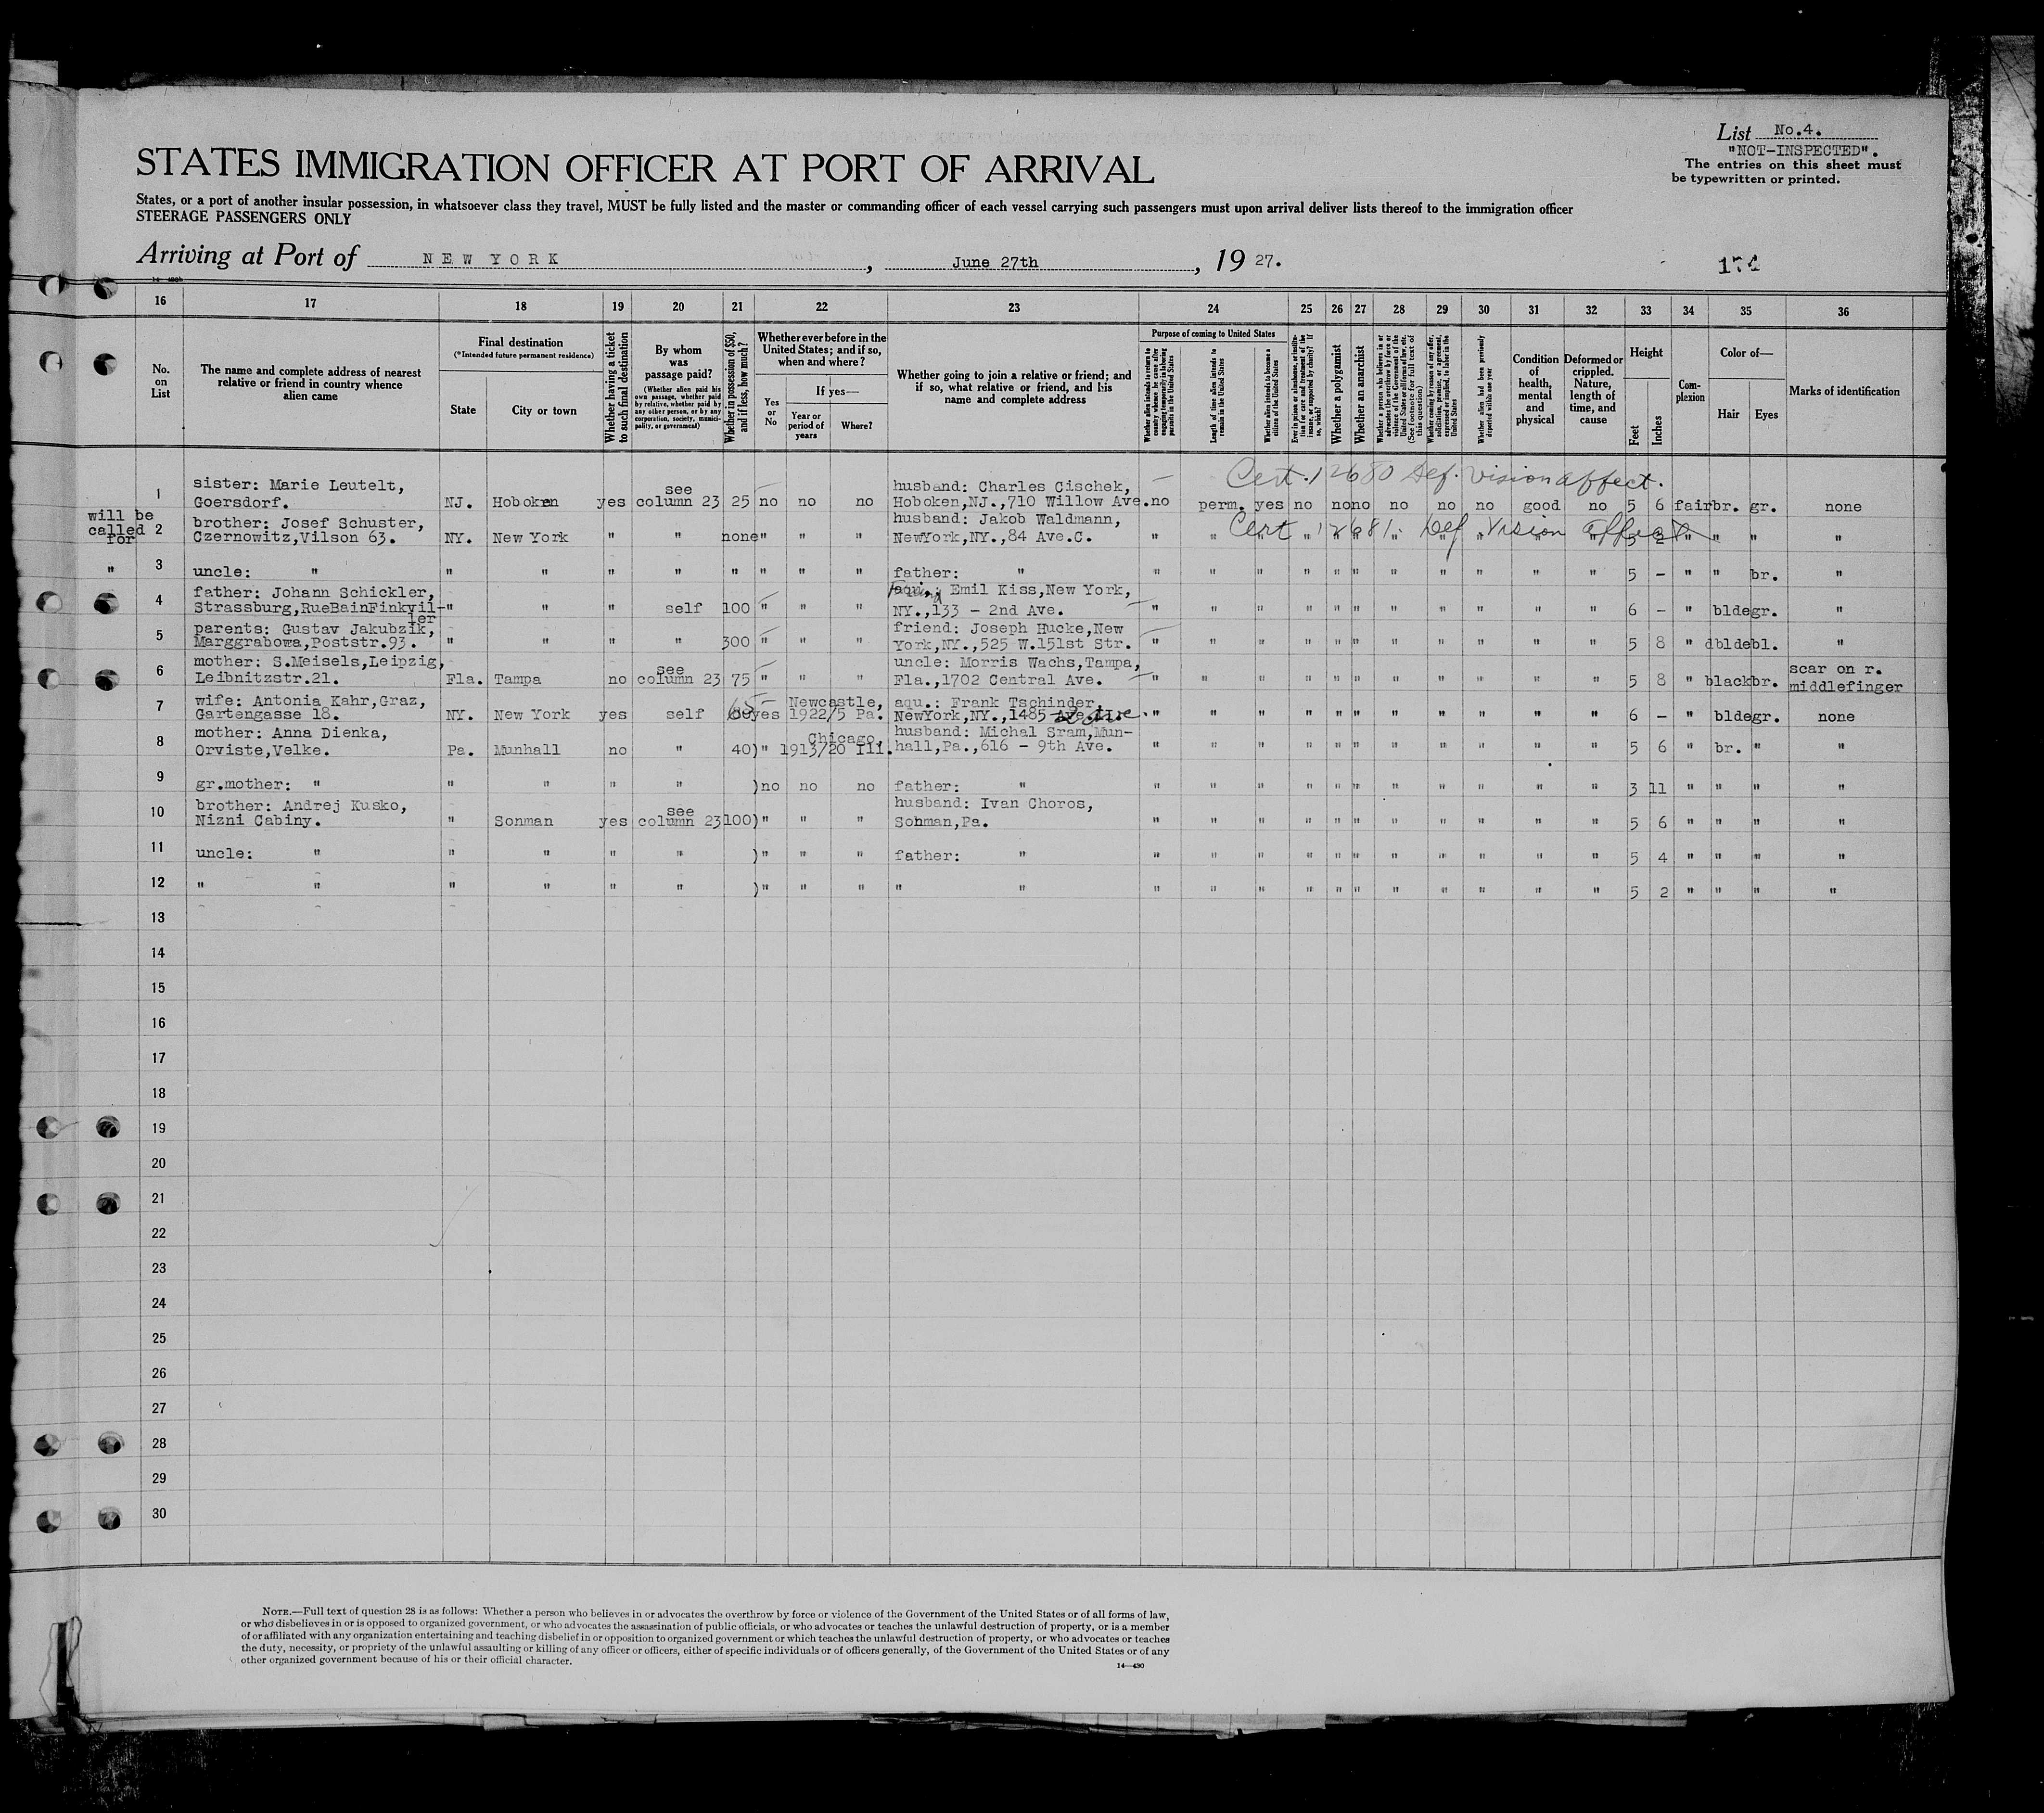 List No.4.
"NOT-INSPECTED".
The entries on this sheet must
be typewritten or printed.
STATES IMMIGRATION OFFICER AT PORT OF ARRIVAL
States, or a port of another insular possession, in whatsoever class they travel, MUST be fully listed and the master or commanding officer of each vessel carrying such passengers must upon arrival deliver lists thereof to the immigration officer
STEERAGE PASSENGERS ONLY
Arriving at Port of NEW YORK, June 27th, 19 27.
174
16 17 18 19 20 21 22 23 24 25 26 27 28 29 30 31 32 33 34 35 36
No. on List
The name and complete address of nearest relative or friend in country whence alien came
Final destination
(*Intended future permanent residence)
State
City or town
Whether having a ticket to such final destination
By whom was passage paid?
(Whether alien paid his own passage, whether paid by relative, whether paid by any other person, or by any corporation, society, municipality, or government)
Whether in possession of $50, and if less, how much?
Whether ever before in the United States; and if so, when and where?
Yes or No
If yes—
Year or period of years
Where?
Whether going to join a relative or friend; and if so, what relative or friend, and his name and complete address
Purpose of coming to United States
Whether alien intends to return to country whence he came after engaging temporarily in laboring pursuits in the United States
Length of time alien intends to remain in the United States
Whether alien intends to become a citizen of the United States
Ever in prison or almshouse, or institution for care and treatment of the insane, or supported by charity? If so, which?
Whether a polygamist
Whether an anarchist
Whether a person who believes in or advocates the overthrow by force or violence of the Government of the United States or all forms of law, etc. (See footnote for full text of this question)
Whether coming by reason of any offer, solicitation, promise, or agreement, expressed or implied, to labor in the United States
Whether alien had been previously deported within one year
Condition of health, mental and physical
Deformed or crippled. Nature, length of time, and cause
Height
Feet
Inches
Complexion
Color of—
Hair
Eyes
Marks of identification
Cert. 12680 Def. vision affect.
1 sister: Marie Leutelt, Goersdorf. NJ. Hoboken yes see column 23 25 no no no husband: Charles Cischek, Hoboken,NJ.,710 Willow Ave. no perm. yes no no no no no no good no 5 6 fair br. gr. none
Cert 12681. Def Vision affect
will be called for 2 brother: Josef Schuster, Czernowitz,Vilson 63. NY. New York " " none " " " husband: Jakob Waldmann, NewYork,NY.,84 Ave.C. " " " " " " " " " " " 5 2 " " " "
" 3 uncle: " " " " " " " " " father: " " " " " " " " " " " " 5 - " " br. "
4 father: Johann Schickler, Strassburg,RueBainFinkviller " " " self 100 " " " Emil Kiss,New York, NY.,133 - 2nd Ave. " " " " " " " " " " " 6 - " blde gr. "
5 parents: Gustav Jakubzik, Marggrabowa,Poststr.93. " " " " 300 " " " friend: Joseph Hucke,New York,NY.,525 W.151st Str. " " " " " " " " " " " 5 8 " dblde bl. "
6 mother: S.Meisels,Leipzig, Leibnitzstr.21. Fla. Tampa no see column 23 75 " " " uncle: Morris Wachs,Tampa, Fla.,1702 Central Ave. " " " " " " " " " " " 5 8 " black br. scar on r. middlefinger
7 wife: Antonia Kahr,Graz, Gartengasse 18. NY. New York yes self 65 yes 1922/5 Newcastle, Pa. aqu.: Frank Tschinder, NewYork,NY.,1485 Ave. " " " " " " " " " " " 6 - " blde gr. none
8 mother: Anna Dienka, Orviste,Velke. Pa. Munhall no " 40) " 1913/20 Chicago, Ill. husband: Michal Sram,Munhall,Pa.,616 - 9th Ave. " " " " " " " " " " " 5 6 " br. " "
9 gr.mother: " " " " " ) no no no father: " " " " " " " " " " " " 3 11 " " " "
10 brother: Andrej Kusko, Nizni Cabiny. " Sonman yes see column 23 100) " " " husband: Ivan Choros, Sonman,Pa. " " " " " " " " " " " 5 6 " " " "
11 uncle: " " " " " ) " " " father: " " " " " " " " " " " " 5 4 " " " "
12 " " " " " " ) " " " " " " " " " " " " " " " " 5 2 " " " "
13
14
15
16
17
18
19
20
21
22
23
24
25
26
27
28
29
30
NOTE.—Full text of question 28 is as follows: Whether a person who believes in or advocates the overthrow by force or violence of the Government of the United States or of all forms of law,
or who disbelieves in or is opposed to organized government, or who advocates the assassination of public officials, or who advocates or teaches the unlawful destruction of property, or is a member
of or affiliated with any organization entertaining and teaching disbelief in or opposition to organized government or which teaches the unlawful destruction of property, or who advocates or teaches
the duty, necessity, or propriety of the unlawful assaulting or killing of any officer or officers, either of specific individuals or of officers generally, of the Government of the United States or of any
other organized government because of his or their official character.
14—430